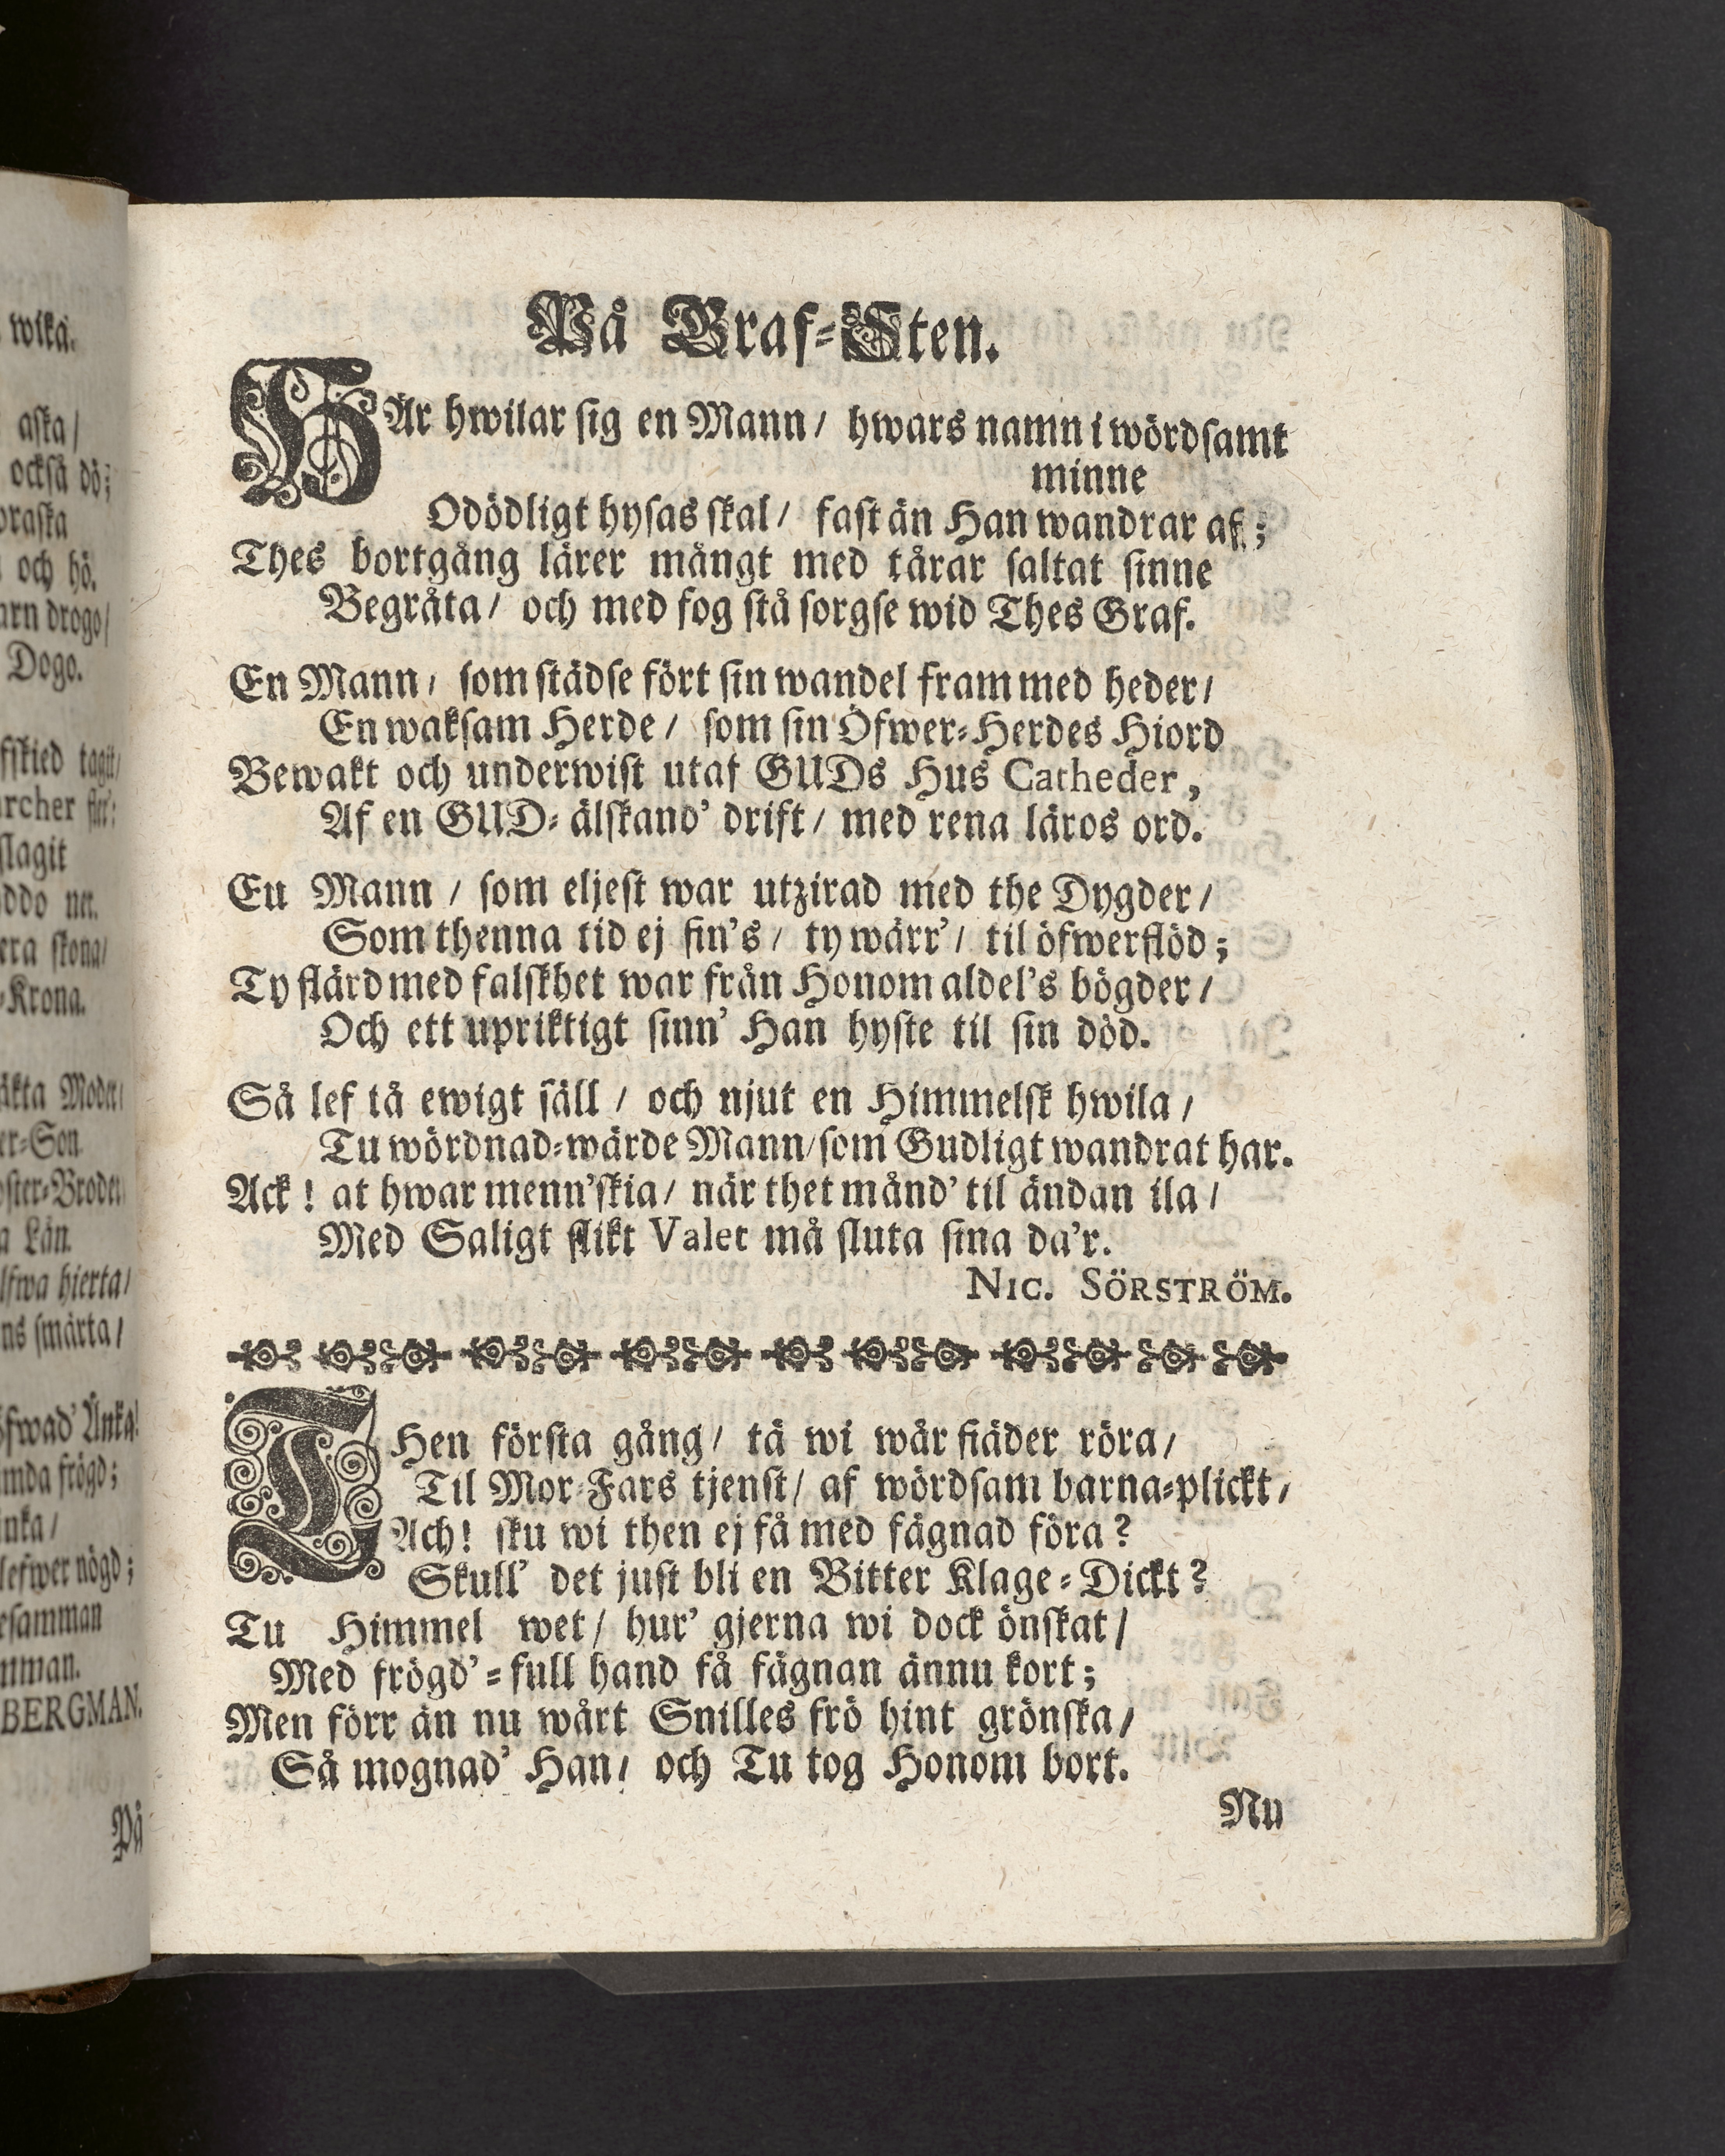 wika.
aska/
också dö;
och hö.
drogo/
Dogo.
tagit/
slagit
skona/
Krona.
Moder/
Son
Län.
hierta/
smärta/
Änka!
frögd;
nögd;
BERGMAN.
På
På Graf-Sten.
HÄr hwilar sig en Mann/ hwars namn i wördsamt
minne
Odödligt hysas skal/ fast än Han wandrar af;
Thes bortgång lärer mångt med tårar saltat sinne
Begråta/ och med fog stå sorgse wid Thes Graf.
En Mann/ som städse fört sin wandel fram med heder/
En waksam Herde/ som sin Öfwer-Herdes Hiord
Bewakt och underwist utaf GUDs Hus Catheder,
Af en GUD-älskand' drift/ med rena läros ord.
En Mann/ som eljest war utzirad med the Dygder/
Som thenna tid ej fin's/ ty wärr'/ til öfwerflöd;
Ty flärd med falskhet war från Honom aldel's bögder/
Och ett upriktigt sinn' Han hyste til sin död.
Så lef tå ewigt säll/ och njut en Himmelsk hwila/
Tu wördnad-wärde Mann/ som Gudligt wandrat har.
Ack! at hwar menn'skia/ när thet månd' til ändan ila/
Med Saligt slikt Valet må sluta sina da'r.
NIC. SÖRSTRÖM.
THen första gång/ tä wi wår fiäder röra/
Til Mor-Fars tjenst/ af wördsam barna-plickt/
Ach! sku wi then ej få med fägnad föra?
Skull' det just bli en Bitter Klage-Dickt?
Tu Himmel wet/ hur' gjerna wi dock önskat/
Med frögd'-full hand få fägnan ännu kort;
Men förr än nu wårt Snilles frö hint grönska/
Så mognad' Han/ och Tu tog Honom bort.
Nu